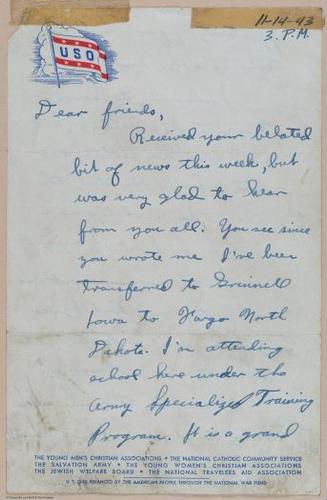 11-14-43
3. P.M.
USO
Dear friends,
Received your belated
bit of news this week, but
was very glad to hear
from you all. You see since
you wrote me I've been
transferred to Grinnell
Iowa to Fargo North
Dakota. I'm attending
school here under the
Army Specialized Training
Program. It is a grand
THE YOUNG MEN'S CHRISTIAN ASSOCIATIONS • THE NATIONAL CATHOLIC COMMUNITY SERVICE
THE SALVATION ARMY • THE YOUNG WOMEN'S CHRISTIAN ASSOCIATIONS
THE JEWISH WELFARE BOARD • THE NATIONAL TRAVELERS AID ASSOCIATION
U.S.O. IS FINANCED BY THE AMERICAN PEOPLE THROUGH THE NATIONAL WAR FUND